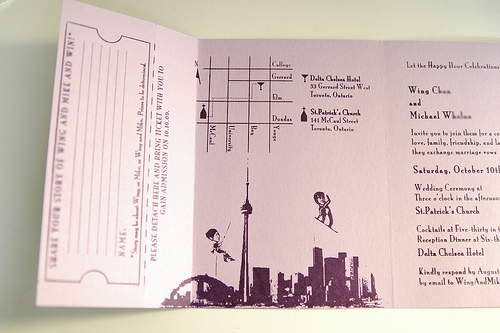 SHARE YOUR STORY OF WING AND MIKE AND WIN!*
NAME:
*Story may be about Wing, or Mike, or Wing and Mike. Prizes to be determined.
PLEASE DETACH HERE AND BRING TICKET WITH YOU TO
GAIN ADMISSION ON 10.10.09.
N
College
Gerrard
Elm
Dundas
McCaul
University
Bay
Yonge
Delta Chelsea Hotel
33 Gerrard Street West
Toronto, Ontario
St.Patrick's Church
141 McCaul Street
Toronto, Ontario
Let the Happy Hour Celebrations
Wing
and
Michael
Invite you to join them for a
love, family, friendship, and
they exchange marriage vows
Saturday, October 10th
Wedding Ceremony at
Three o'clock in the afternoon
St.Patrick's Church
Cocktails at Five-thirty in
Reception Dinner at Six-th
Delta Chelsea Hotel
Kindly respond by August
by email to WingAndMik